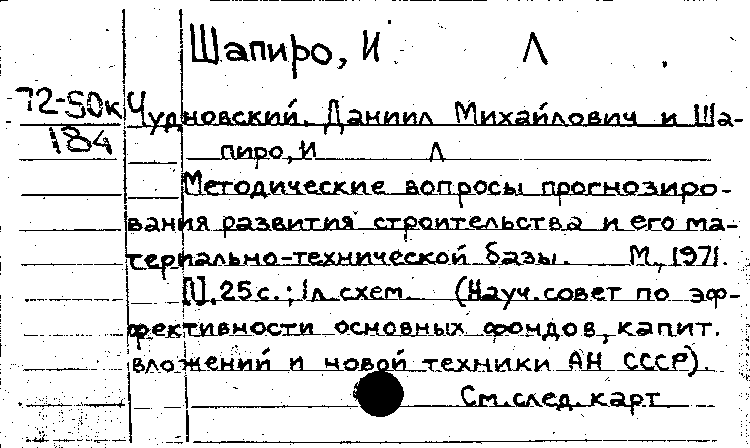 Шапиро, И Л
72-50к
184
Чудновский, Даниил Михайлович и Ша-
пиро, И Л
Методические вопросы прогнозиро-
вания развития строительства и его ма-
териально-технической базы. М., 1971.
[1], 25 с.; 1 л. схем. (Науч. совет по эф-
фективности основных фондов, капит.
вложений и новой техники АН СССР).
См. след. карт